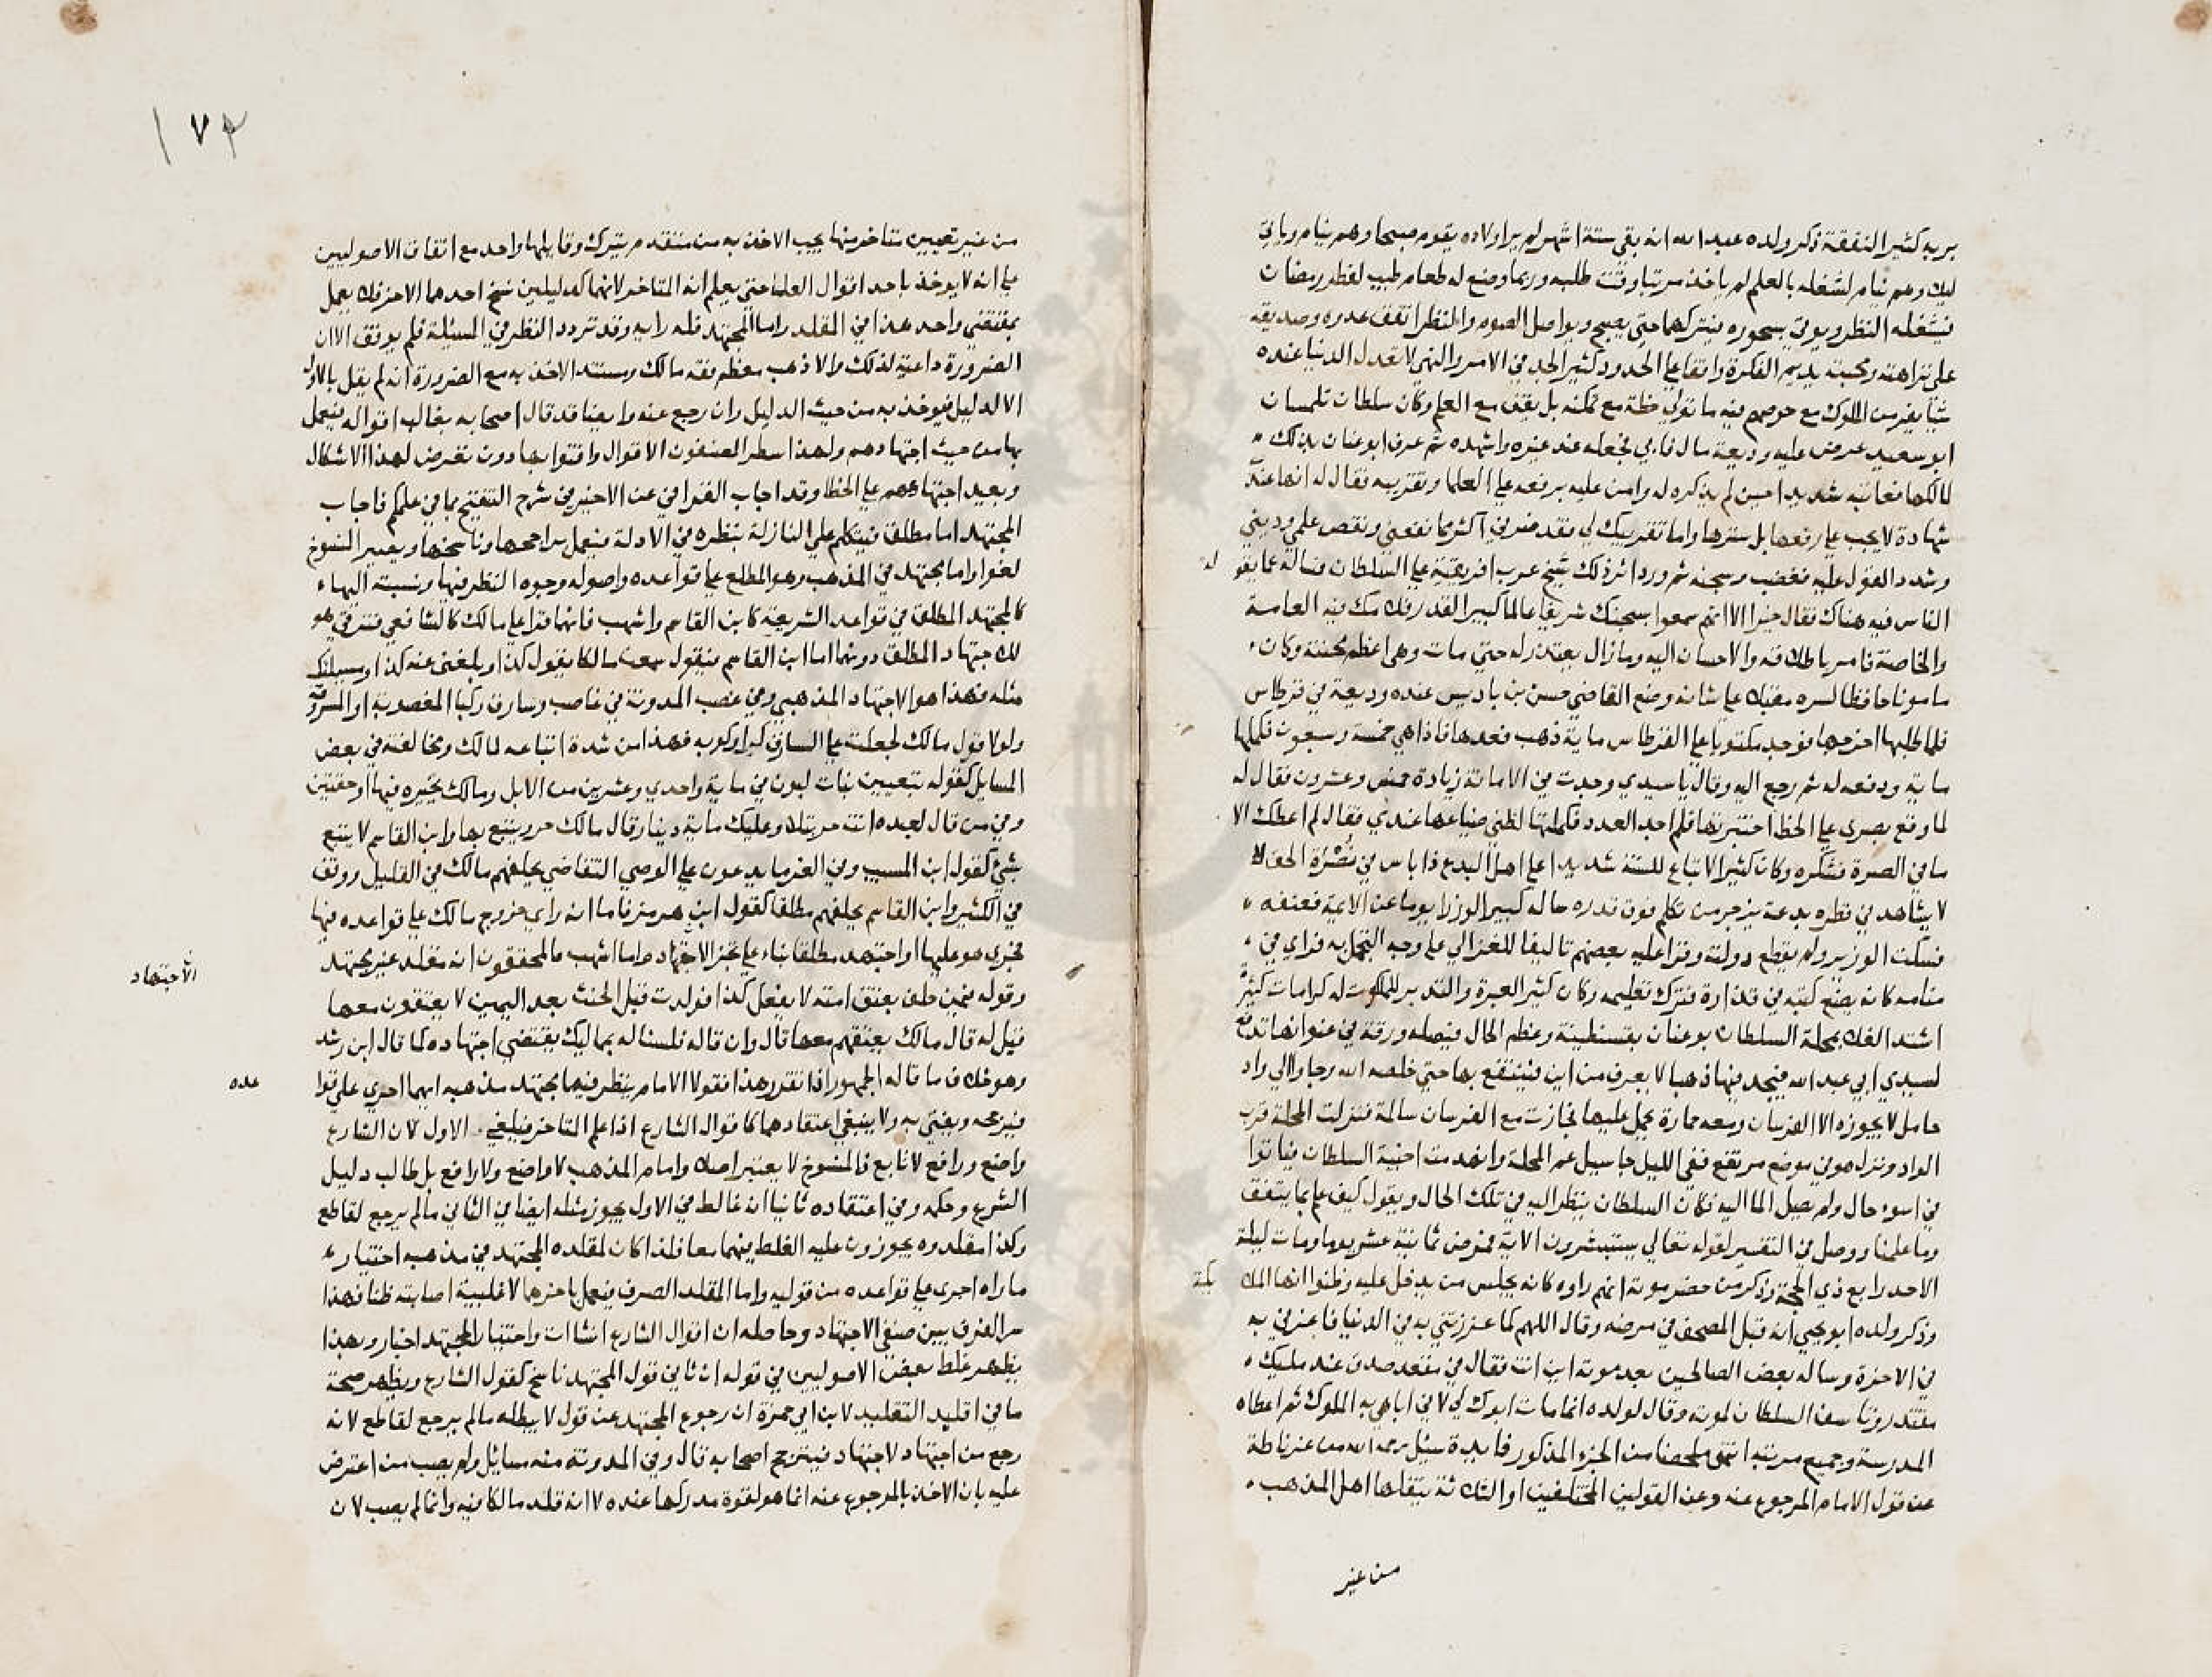 بربه كثير النفقة ذكر ولده عبد الله انه بقي ستة اشهر لم ير اولاده يقوم صبحا وهم نيام وياتي
ليلا وهم نيام لشغله بالعلم لم ياخذ مرتبا وقت طلبه وربما وضع له طعام طيب لفطر رمضان
فيشغله النظر ويوتى بسحوره فيتركهما حتى يصبح ويواصل الصوم والنظر اتفق عدوه وصديقه
على نزاهته ومحبته يديم الفكرة واقفا على الحدود كثير الجد في الامر والنهي لا تعدل الدنيا عنده
شيا يفر من الملوك مع حرصهم فيه ما تولى خطة مع تمكنه بل يقف مع العلم وكان سلطان تلمسان
ابو سعيد عرض عليه وديعة مال فابي فجعله عند غيره واشهده ثم عرف ابو عنان بذلك
لمالكها فعاتبه شديدا حين لم يذكره له وامتن عليه برفعه على العلما وتقريبه فقال له انها عندي
شهادة لا يجب علي رفعها بل سترها واما تقريبك لي فقد ضرني اكثر مما نفعني ونقص علمي وديني
وشدد القول عليه فغضب وسجنه ثم ورد اثر ذلك شيخ عرب افريقية على السلطان فساله عما يقو له
الناس فيه هناك فقال خيرا الا انهم سمعوا بسجنك شريفا عالما كبير القدر فلامك فيه العامة
والخاصة فامر باطلاقه والاحسان اليه وما زال يعتذر له حتى مات وهي اعظم محنته وكان
مامونا حافظا لسره مقبلا على شانه وضع القاضي حسن بن باديس عنده وديعة في قرطاس
فلما طلبها اخرجها فوجد مكتوبا على القرطاس ماية ذهب فعدها فاذا هي خمسة وسبعون فكملها
ماية ودفعه له ثم رجع اليه وقال يا سيدي وجدت في الامانة زيادة خمس وعشرون فقال له
لما وقع بصري على الخط اختبرتها فلم اجد العدد فكملتها لظني ضياعها عندي فقال لم اعطك الا
ما في الصرة فشكره وكان كثير الاتباع للسنة شديدا على اهل البدع ذا باس في نصرة الحق لا
لا يشاهد في نظره بدعة يزجر من تكلم فوق قدره ساله كبير الوزرا يوما عن الاية فعنفه
فسكت الوزير ولم يقطع دولته وقرا عليه بعضهم تاليفا للغزالي على وجه التجمل به فراي في
منامه كانه يضع كتبه في قذارة فترك تعليمه وكان كثير العبرة والتدبر للملكوت له كرامات كثيرة
اشتد الغلا بمحلة السلطان بو عنان بقسنطينة وعظم الحال فيصله ورقة في عنوانها تدفع
لسيدي ابي عبد الله فيجد فيها ذهبا لا يعرف من اين فينتفع بها حتى خلصه الله وجاوا الى واد
حامل لا يجوزه الا الفرسان ومعه حمارة يحمل عليها فجازت مع الفرسان سالمة فنزلت المحلة قرب
الواد ونزل هو في موضع مرتفع ففي الليل جا سيل عم المحلة وانهدمت اخبية السلطان فباتوا
في اسوء حال ولم يصل الما اليه فكان السلطان ينظر اليه في تلك الحال ويقول كيف علم بما يتفق
وما علمنا ووصل في التفسير لقوله تعالى يستبشرون الاية فمرض ثمانية عشر يوما ومات ليلة
الاحد رابع ذي الحجة وذكر من حضر موته انهم راوه كانه يجلس من يدخل عليه وظنوا انها الملا ئكة
وذكر ولده ابو يحيى انه قبل المصحف في مرضه وقال اللهم كما عززتني به في الدنيا فاعزني به
في الاخرة وساله بعض الصالحين بعد موته اين انت فقال في مقعد صدق عند مليك
مقتدر وتاسف السلطان لموته وقال لولده انما مات ابوك لي لاني اباهي به الملوك ثم اعطاه
المدرسة وجميع مرتبه انتهى ملخصا من الجزء المذكور فايدة سيل رحمه الله من غرناطة
عن قول الامام المرجوع عنه وعن القولين المختلفين او الثلاثة ينقلها اهل المذهب
من غير
١٧٢
من غير تعيين متاخر منها يجب الاخذ به من متقدم يترك وقايلها واحد مع اتفاق الاصوليين
على انه لا يوخذ باحد اقوال العلما حتى يعلم انه المتاخر لانهما كدليلين نسخ احدهما الاخر فلا يعمل
بمقتضي واحد هذا في المقلد واما المجتهد فله رايه وقد تردد النظر في المسيلة فلم يوفق الا ان
الضرورة داعية لذلك والا ذهب معظم فقه مالك ومستند الاخذ به مع الضرورة انه لم يقل بالاول
الا لدليل فيوخذ به من حيث الدليل وان رجع عنه وايضا قد قال اصحابه بغالب اقواله فيعمل
بها من حيث اجتهادهم ولهذا سطر المصنفون الاقوال وافتوا بها دون تعرض لهذا الاشكال
وبعيد اجتماعهم على الخطا وقد اجاب القرافي عن الاخير في شرح التنقيح بما في علمكم فاجاب
المجتهد اما مطلق فيتكلم على النازلة بنظره في الادلة فيعمل براجحها وناسخها ويصير المنسوخ
لغوا واما مجتهد في المذهب وهو المطلع على قواعده واصوله وجوه النظر فيها ونسبته اليها
كالمجتهد المطلق في قواعد الشريعة كابن القاسم واشهب فانهما قرا على مالك كالشافعي فترقى هو
للاجتهاد المطلق دونهما اما ابن القاسم فيقول سمعت مالكا يقول كذا او بلغني عنه كذا او مسيلتك
مثله فهذا هو الاجتهاد المذهبي وفي غصب المدونة في غاصب وسارق ركبا المغصوبة او المسروقة
ولولا قول مالك لجعلت على السارق كرا ركوبه فهذا من شدة اتباعه لمالك ومخالفته في بعض
المسايل كقوله بتعيين بنات لبون في ماية واحدي وعشرين من الابل ومالك يخيره فيها او حقتين
وفي من قال لعبده انت حر بتلا وعليك ماية دينار قال مالك حر ويتبع بها وابن القاسم لا يتبع
بشي كقول ابن المسيب وفي الغرما يدعون على الوصي التقاضي يحلفهم مالك في القليل ووقف
في الكثير وابن القاسم يحلفهم مطلقا كقول ابن هرمز فاما انه راي خروج مالك على قواعده فيها
فجرى هو عليها او اجتهد مطلقا بناء على تجز الاجتهاد واما اشهب فالمحققون انه مقلد غير مجتهد
الاجتهاد
وقوله فيمن حلف بعتق امته لا يفعل كذا فولدت قبل الحنث بعد اليمين لا يعتقون معها
فقيل له قال مالك يعتقهم معها قال وان قاله فلسنا له بمماليك يقتضي اجتهاده كما قال ابن رشد
وهو خلاف ما قاله الجمهور اذا تقرر هذا فقولا الامام ينظر فيهما مجتهد مذهبه ايهما اجرى على قوا عده
فيرجحه ويفتي به ولا ينبغي اعتقادهما كاقوال الشارع اذا علم المتاخر فيلغى الاول لان الشارع
واضع ورافع لا تابع فالمنسوخ لا يعتبر اصلا وامام المذهب لا واضع ولا رافع بل طالب دليل
الشرع وحكمه وفي اعتقاده ثانيا انه غالط في الاول يجوز مثله ايضا في الثاني ما لم يرجع لقاطع
وكذا مقلدوه يجوزون عليه الغلط فيهما معا فلذا كان لمقلده المجتهد في مذهبه اختيار
ما راه اجرى على قواعده من قوليه واما المقلد الصرف فيعمل باخرهما لاغلبية اصابته ظنا فهذا
سر الفرق بين صنفي الاجتهاد وحاصله ان اقوال الشارع انشاات واختيار المجتهد اخبار وبهذا
يظهر غلط بعض الاصوليين في قوله ان ثاني قول المجتهد ناسخ كقول الشارع ويظهر صحة
ما في اقليد التقليد لابن ابي جمرة ان رجوع المجتهد عن قول لا يبطله ما لم يرجع لقاطع لانه
رجع من اجتهاد لاجتهاد فيترجح اصحابه قال وفي المدونة منه مسايل ولم يصب من اعترض
عليه بان الاخذ بالمرجوع عنه انما هو لقوة مدركها عنده لا انه قلد مالكا فيه وانما لم يصب لان